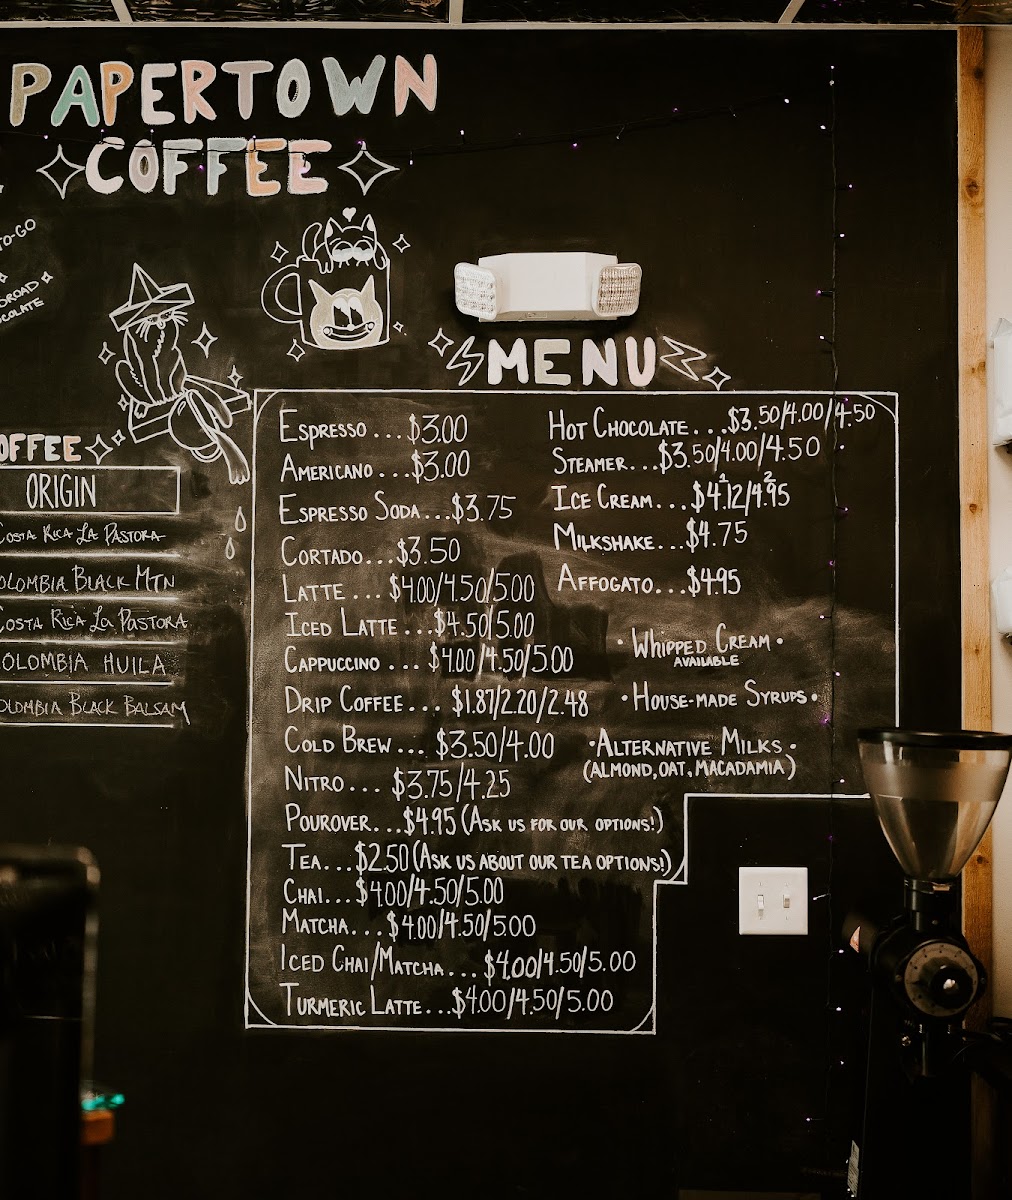 PAPERTOWN
COFFEE
TO-GO
MENU
ORIGIN
COSTA RICA LA PASTORA
COLOMBIA BLACK MTN
COSTA RICA LA PASTORA
COLOMBIA HUILA
COLOMBIA BLACK BALSAM
ESPRESSO...$3.00
AMERICANO...$3.00
ESPRESSO SODA...$3.75
CORTADO...$3.50
LATTE...$4.00/4.50/5.00
ICED LATTE...$4.50/5.00
CAPPUCCINO...$4.00/4.50/5.00
DRIP COFFEE...$1.87/2.20/2.48
COLD BREW...$3.50/4.00
NITRO...$3.75/4.25
POUROVER...$4.95 (ASK US FOR OUR OPTIONS!)
TEA...$2.50 (ASK US ABOUT OUR TEA OPTIONS!)
CHAI...$4.00/4.50/5.00
MATCHA...$4.00/4.50/5.00
ICED CHAI/MATCHA...$4.00/4.50/5.00
TURMERIC LATTE...$4.00/4.50/5.00
HOT CHOCOLATE...$3.50/4.00/4.50
STEAMER...$3.50/4.00/4.50
ICE CREAM...$4.12/4.95
1 2
MILKSHAKE...$4.75
AFFOGATO...$4.95
• WHIPPED CREAM •
AVAILABLE
• HOUSE-MADE SYRUPS •
• ALTERNATIVE MILKS •
(ALMOND, OAT, MACADAMIA)